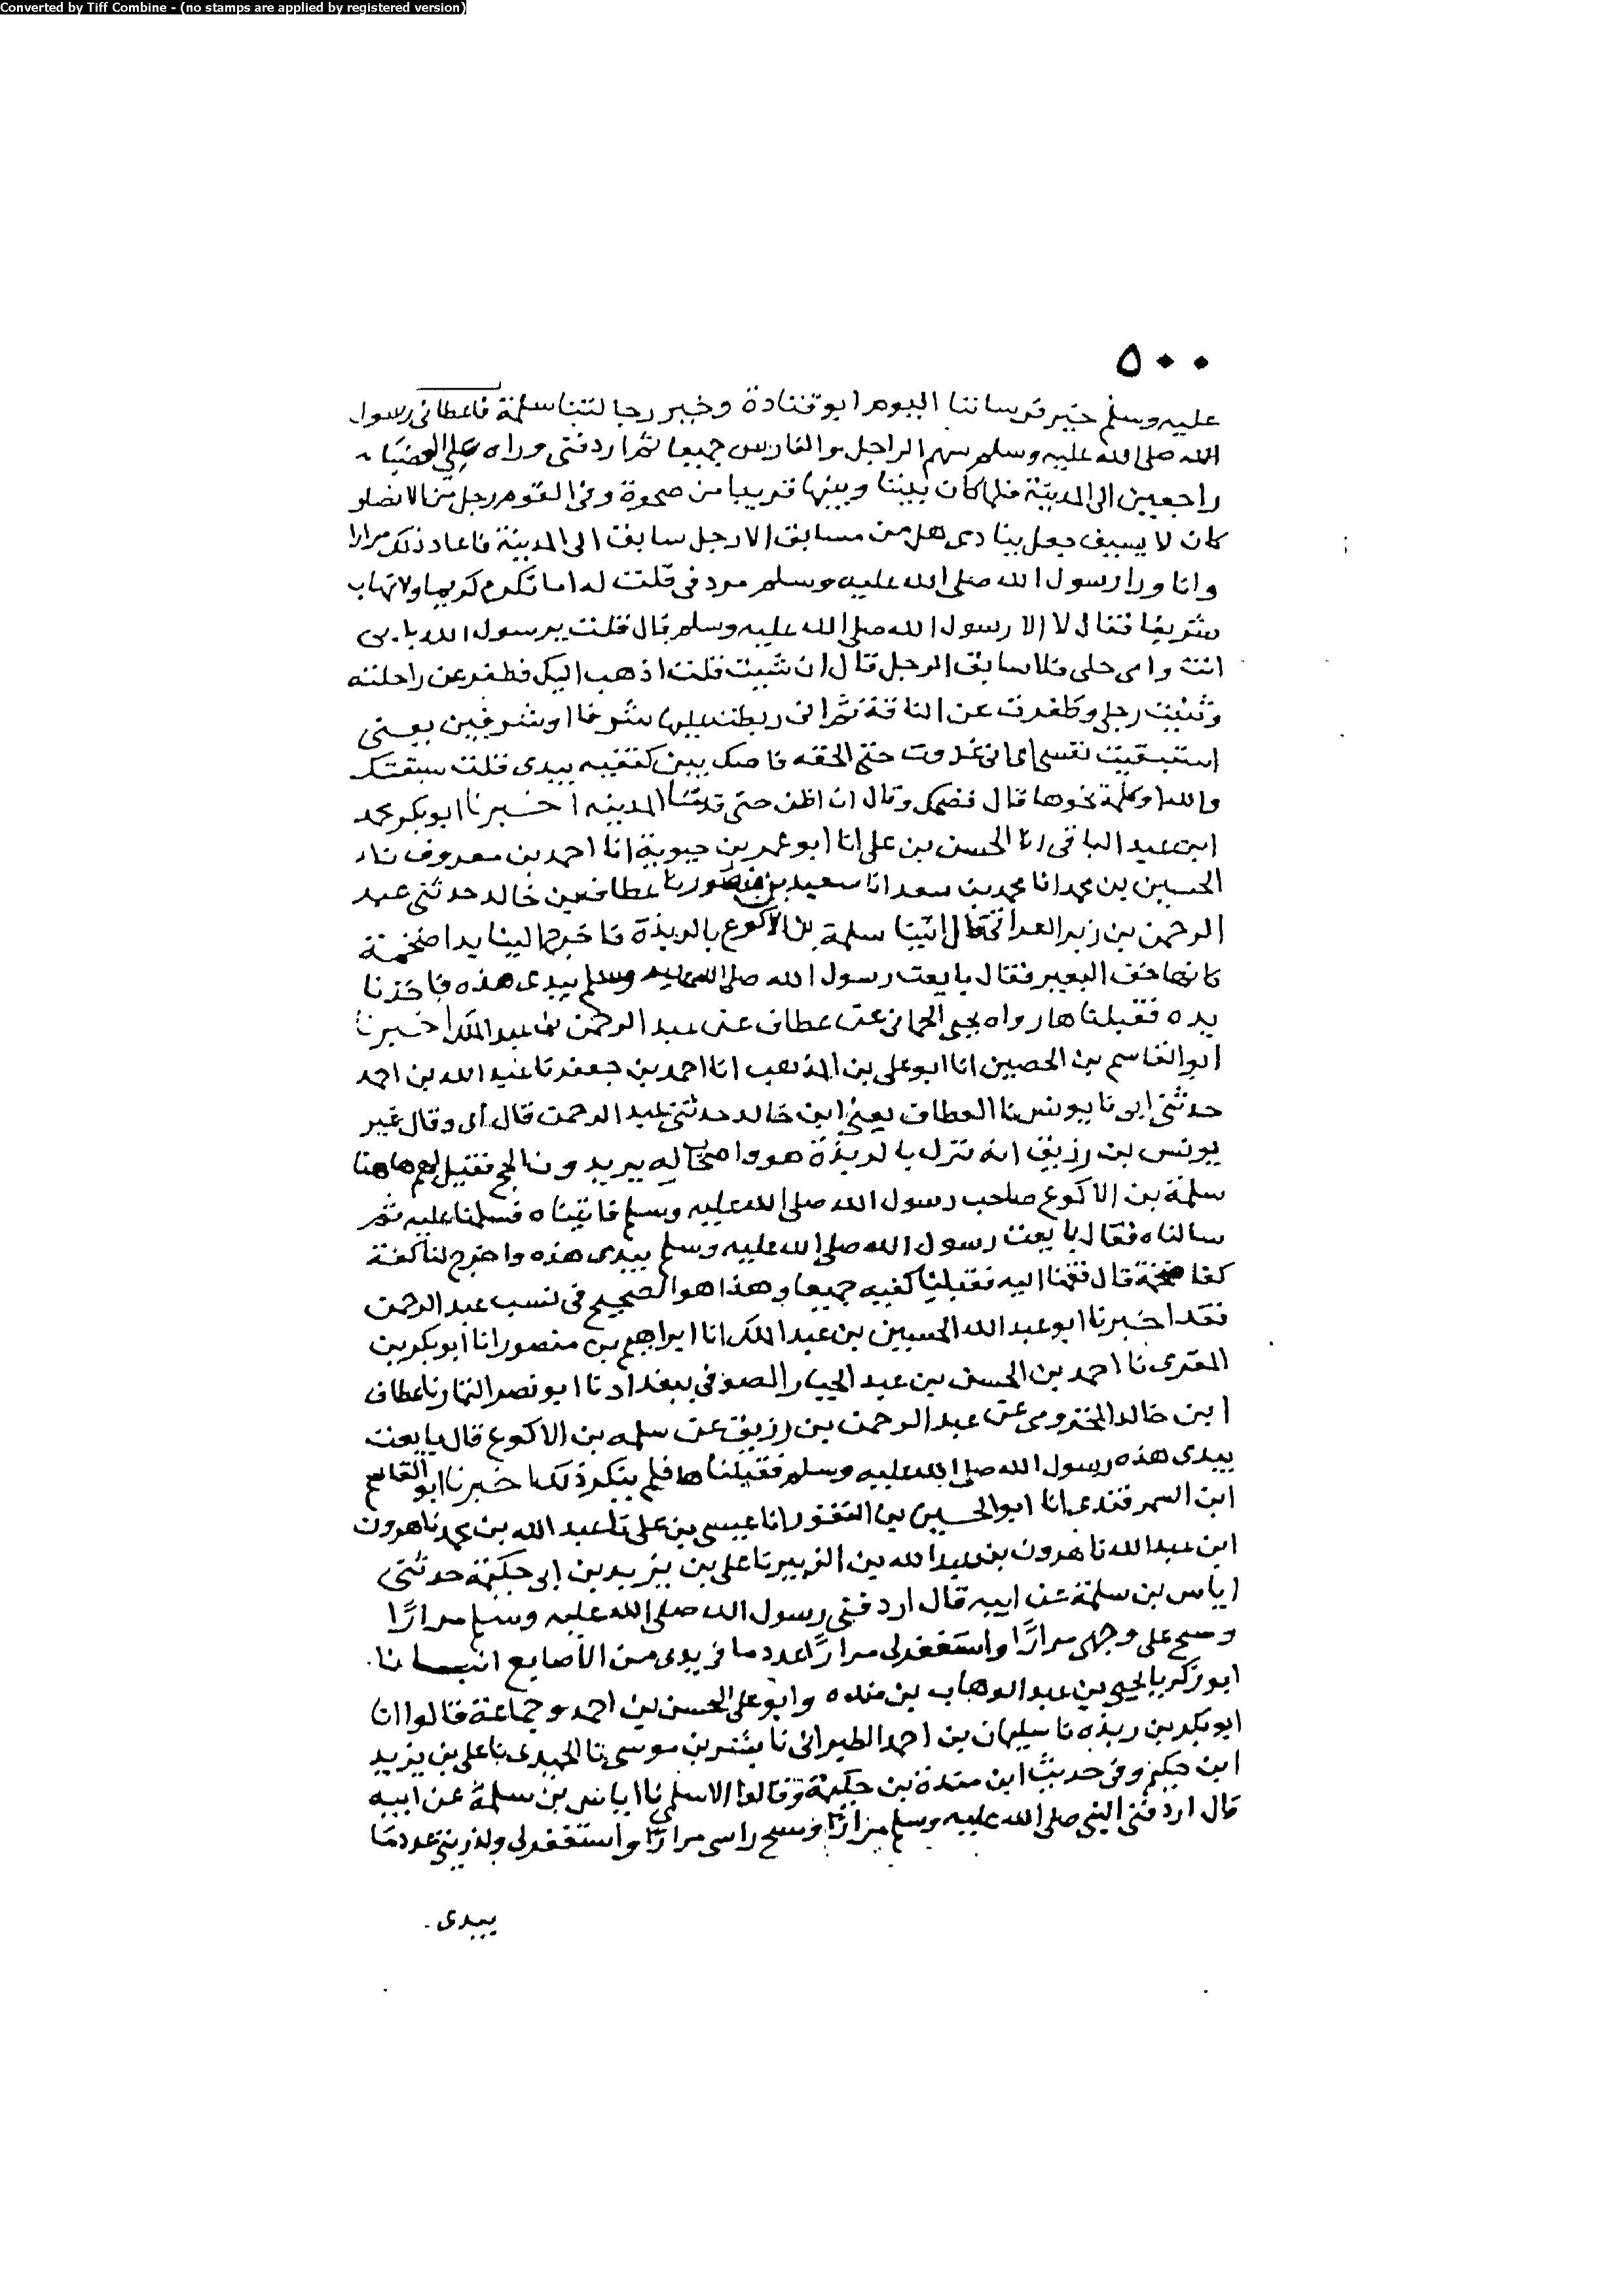 Converted by Tiff Combine - (no stamps are applied by registered version)
٥٠٠
عليه وسلم خير فرساننا اليوم ابو قتادة وخير رجالتنا سلمة فاعطانى رسول
الله صلى الله عليه وسلم سهم الراجل والفارس جميعا ثم اردفنى وراه على العضباء
راجعين الى المدينة فلما كان بيننا وبينها قريبا من ضحوة وفى القوم رجل من الانصار
كان لا يسبق جعل ينادى هل من مسابق الا رجل سابق الى المدينة فاعاد ذلك مرارا
وانا ورا رسول الله صلى الله عليه وسلم مردفى قلت له اما تكرم كريما ولا تهاب
شريفا فقال لا الا رسول الله صلى الله عليه وسلم قال قلت يرسول الله بابى
انت وامى خلى فلا سابق الرجل قال ان شيت قلت اذهب اليك فطفر عن راحلته
وثنيت رجلى وطفرت عن الناقة ثم انى ربطت عليها شرفا او شرفين يعنى
استبقيت نفسى اى انى غدوت حتى الحقه فاصك بين كتفيه بيدى قلت سبقتك
والله او كلمة نحوها قال فضحك وقال ان اظن حتى قدمنا المدينه اخبرنا ابو بكر محمد
ابن عبد الباقى انا الحسن بن على انا ابو عمر بن حيوية انا احمد بن معروف نا
الحسين بن محمد انا محمد بن سعد انا سعيد بن منصور نا عطاف بن خالد حدثنى عبد
الرحمن بن زيد العراقى قال اتينا سلمة بن الاكوع بالربذة فاخرج الينا يدا ضخمة
كانها خف البعير فقال بايعت رسول الله صلى الله عليه وسلم بيدى هذه فاخذنا
يده فقبلناها رواه يحيى الحمانى عن عطاف عن عبد الرحمن بن عبد الملك اخبرنا
ابو القاسم بن الحصين انا ابو على بن المذهب انا احمد بن جعفر نا عبد الله بن احمد
حدثنى ابى نا يونس نا العطاف يعنى ابن خالد حدثنى عبد الرحمن قال ابى وقال غير
يونس بن رزيق انه نزل بالربذة هو واصحاب له يريدون الحج فقيل لهم هاهنا
سلمة بن الاكوع صاحب رسول الله صلى الله عليه وسلم فاتيناه فسلمنا عليه ثم
سالناه فقال بايعت رسول الله صلى الله عليه وسلم بيدى هذه واخرج لنا كفة
كفا ضخمة قال فقمنا اليه فقبلنا كفيه جميعا وهذا هو الصحيح فى نسب عبد الرحمن
فقد اخبرنا ابو عبد الله الحسين بن عبد الملك انا ابراهيم بن منصور انا ابو بكر بن
المقرى نا احمد بن الحسن بن عبد الجبار الصوفى ببغداد نا ابو نصر التمار نا عطاف
ابن خالد المخزومى عن عبد الرحمن بن رزيق عن سلمه بن الاكوع قال بايعت
بيدى هذه رسول الله صلى الله عليه وسلم فقبلناها فلم ينكر ذلك اخبرنا ابو القاسم
ابن السمرقندى انا ابو الحسين بن النقور انا عيسى بن على نا عبد الله بن محمد نا هرون
ابن عبد الله نا هرون بن عبد الله بن الزبير نا على بن يزيد بن ابى حكيمة حدثنى
اياس بن سلمة عن ابيه قال اردفنى رسول الله صلى الله عليه وسلم مرارًا
ومسح على وجهى مرارًا واستغفر لى مرارًا عدد ما فى يدى من الاصابع انبانا
ابو زكريا يحيى بن عبد الوهاب بن منده وابو على الحسن بن احمد وجماعة قالوا انا
ابو بكر بن ريذه نا سليمان بن احمد الطبرانى نا بشر بن موسى نا الحميدى نا على بن يزيد
ابن حكيم وفى حديث ابن مندة بن حكيمة وقالوا الاسلمى نا اياس بن سلمة عن ابيه
قال اردفنى النبى صلى الله عليه وسلم مرارًا ومسح راسى مرارًا واستغفر لى ولذريتى عدد ما
بيدى